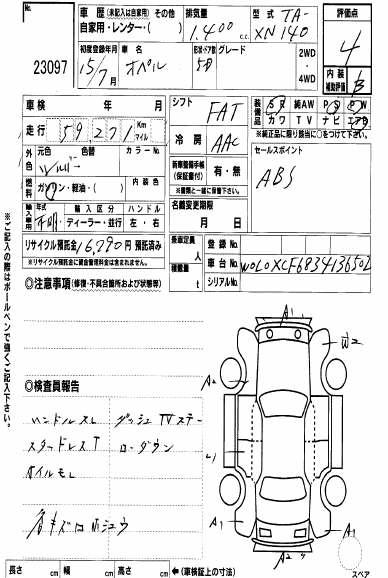 No.
23097
車歴 (未記入は自家用) その他
自家用・レンター・( )
排気量
1.400 c.c.
型式 TA-
XN140
評価点
4
初度登録年月
15/7月
車名
オペル
形状・ドア数
5D
グレード
2WD
・
4WD
内装
補助評価
B
車検 年 月
シフト
FAT
装備品 SR 純AW PS PW
カワ TV ナビ エアB
※純正品に限り該当に○をつけて下さい。
走行 59271 Km
マイル
冷房
AAC
セールスポイント
ABS
外色 元色 色替 カラーNo.
シルバー
新車整備手帳
(保証書付)
有・無
※書類と一緒に保管下さい。
燃料 ガソリン・軽油・( ) 内装色
名義変更期限
月 日
輸入車用 年式 輸入区分 ハンドル
不明 ディーラー・並行 左・右
リサイクル預託金 16,290円 預託済み
※リサイクル預託金に資金管理料金は含まれません。
乗車定員 人
積載量 t
登録No.
車台No. W0L0XCF6834136502
シリアルNo.
◎注意事項 (修復・不具合箇所および状態等)
※ご記入の際はボールペンで強くご記入下さい。
A1
W2
A2
◎検査員報告
ハンドルスレ ダッシュTVステー
スタッドレスT ローダウン
オイルモレ
A1
A1
A2
スペア
長さ cm 幅 cm 高さ cm ←(車検証上の寸法)